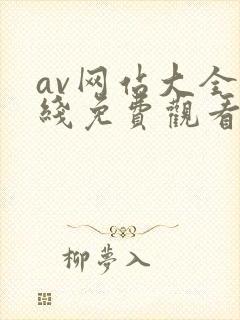 av网佔大全
綫免費觀看
柳夢入